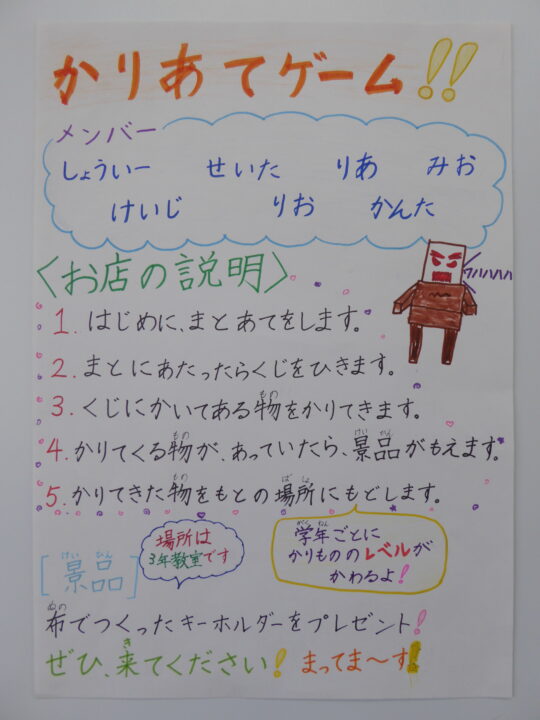 かりあてゲーム!!
メンバー
しょういー せいた りあ みお
けいじ りお かんた
〈お店の説明〉
ハハハハハ
1. はじめに、まとあてをします。
2. まとにあたったらくじをひきます。
3. くじにかいてある物をかりてきます。
4. かりてくる物が、あっていたら、景品がもえます。
5. かりてきた物をもとの場所にもどします。
場所は
3年教室です
学年ごとに
かりもののレベルが
かわるよ!
[景品]
布でつくったキーホルダーをプレゼント!
ぜひ、来てください! まってま〜す!